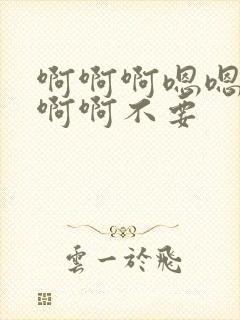 啊啊啊嗯嗯
啊啊不要
雲一於飛